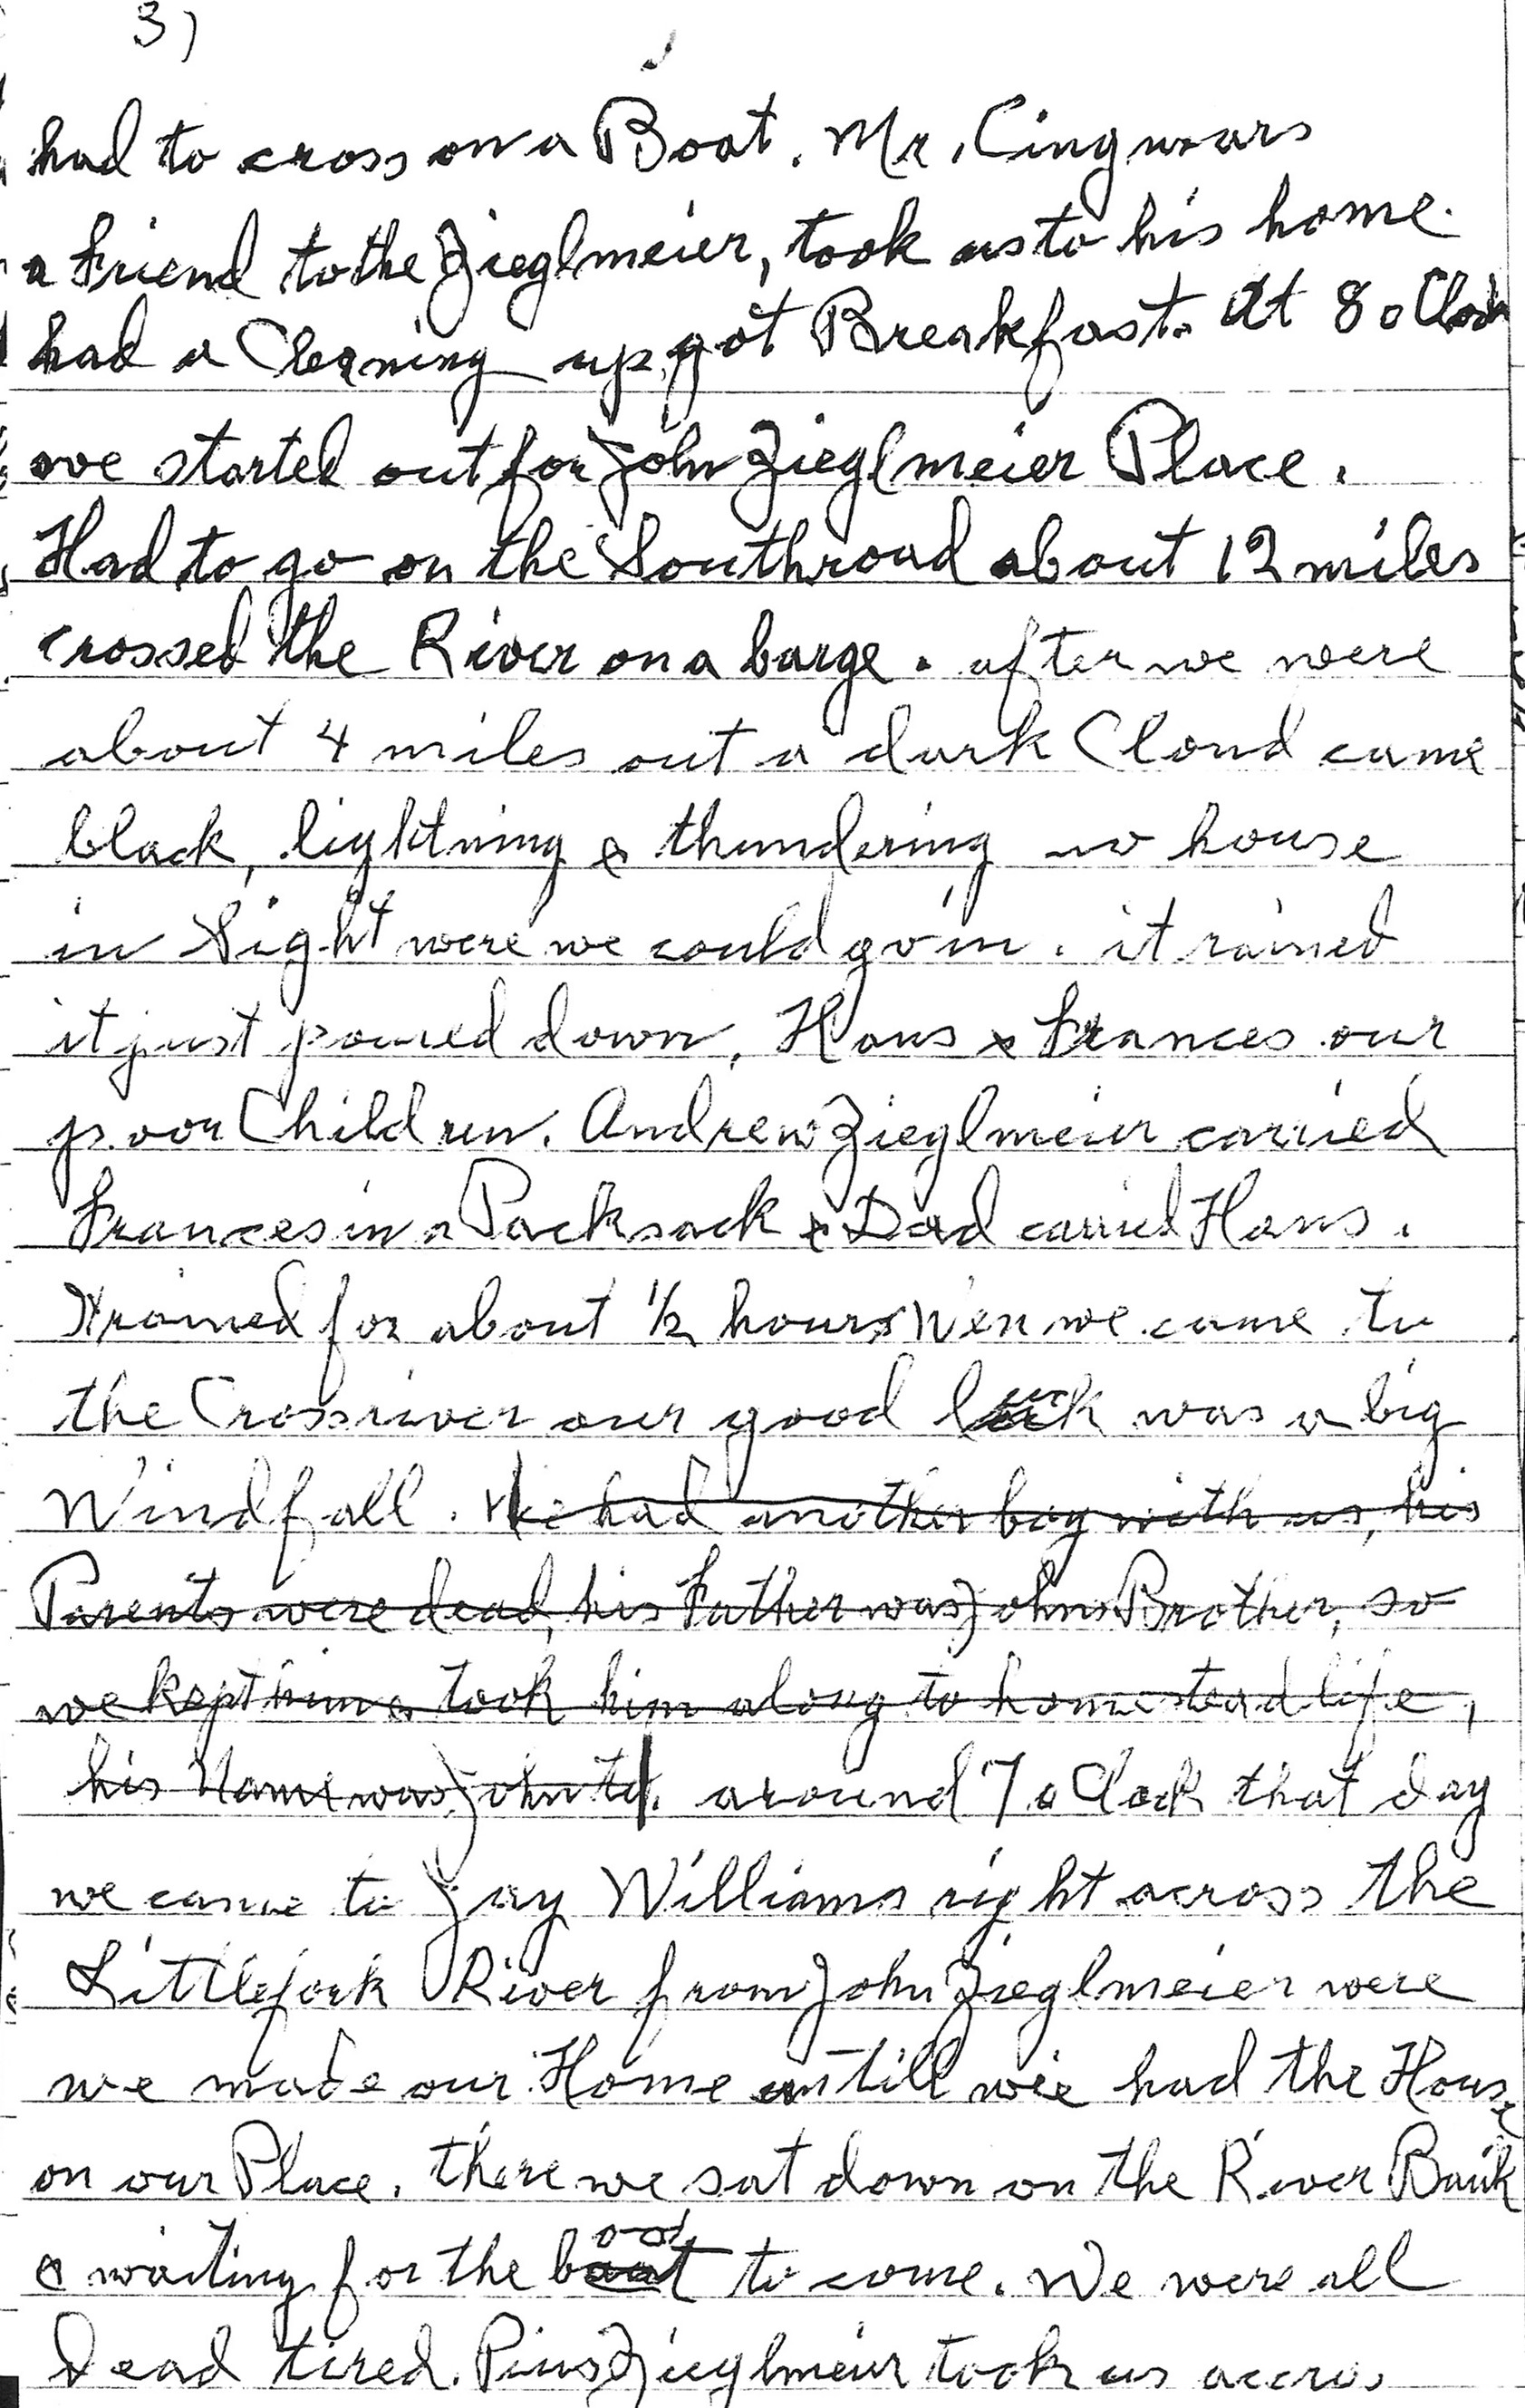 3)
had to cross on a Boat. Mr. Cingwars
a Friend to the Zieglmeier, took us to his home.
had a Cleaning up, got Breakfast. At 8 o Clock
we started out for John Zieglmeier Place.
Had to go on the Southroad about 12 miles
crossed the River on a barge. after we were
about 4 miles out a dark Cloud came
black, lightning & thundering no house
in Sight were we could go in. it rained
it just poured down, Hans & Frances our
poor Children. Andrew Zieglmeier carried
Frances in a Packsack & Dad carried Hans.
It rained for about 1/2 hours Wen we came to
the Crossriver our good luck was a big
Windfall. We had another boy with us, his
Parents were dead, his Father was Johns Brother, so
we kept him & took him along to homestead life,
his Name was John to. around 7 o Clock that day
we came to Jay Williams right across the
Littlefork River from John Zieglmeier were
we made our Home untill wie had the House
on our Place. there we sat down on the River Bank
& waiting for the boat to come. We were all
Dead tired. Pius Zieglmeier took us accros